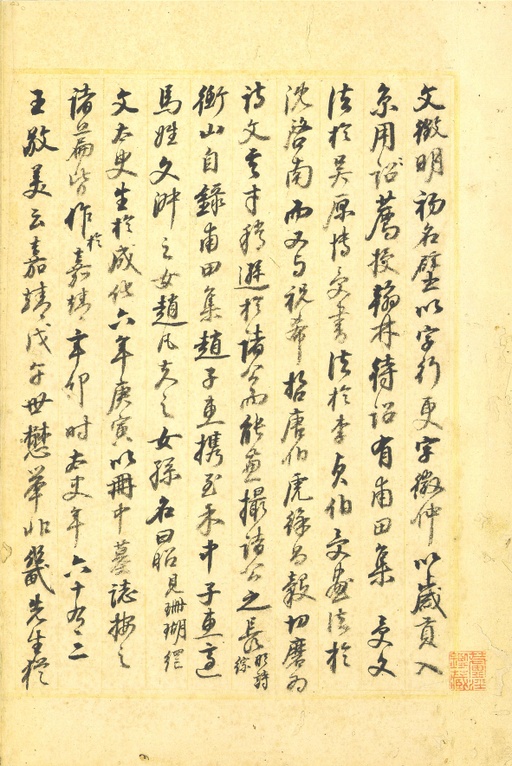 文徵明初名璧以字行更字徵仲以歲貢入
京用詔薦授翰林待詔有甫田集 受文
法於吳原博受書法於李貞伯受畫法於
沈啓南而又與祝希哲唐伯虎徐昌穀切磨為
詩文其才稍遜於諸公而能兼撮諸公之長明詩綜
衡山自錄甫田集趙子惠攜至禾中子惠高
馬姓文姊之女趙凡夫之女孫名曰昭見珊瑚網
文太史生於成化六年庚寅以冊中墓誌按之
諸篇皆作於嘉靖辛卯時太史年六十有二
王敬美云嘉靖戊午世懋舉北畿先生猶